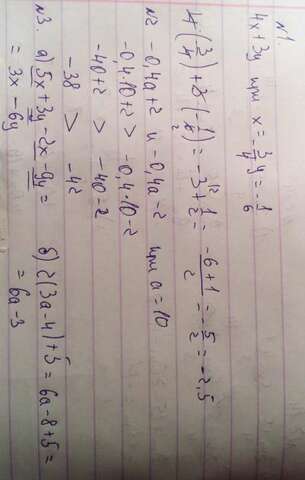 N1
4x+3y при x = -3/4 y = -1/6
4(3/4) + 3·(-1/6) = -3 + 1/2 = -6+1/2 = -5/2 = -2,5
N2 -0,4a+2 и -0,4a-2 при a = 10
-0,4·10+2 > -0,4·10-2
-40+2 > -40-2
-38 > -42
N3. а) 5x+3y-2x-9y=
= 3x - 6y
б) 2(3a-4)+5 = 6a-8+5 =
= 6a-3